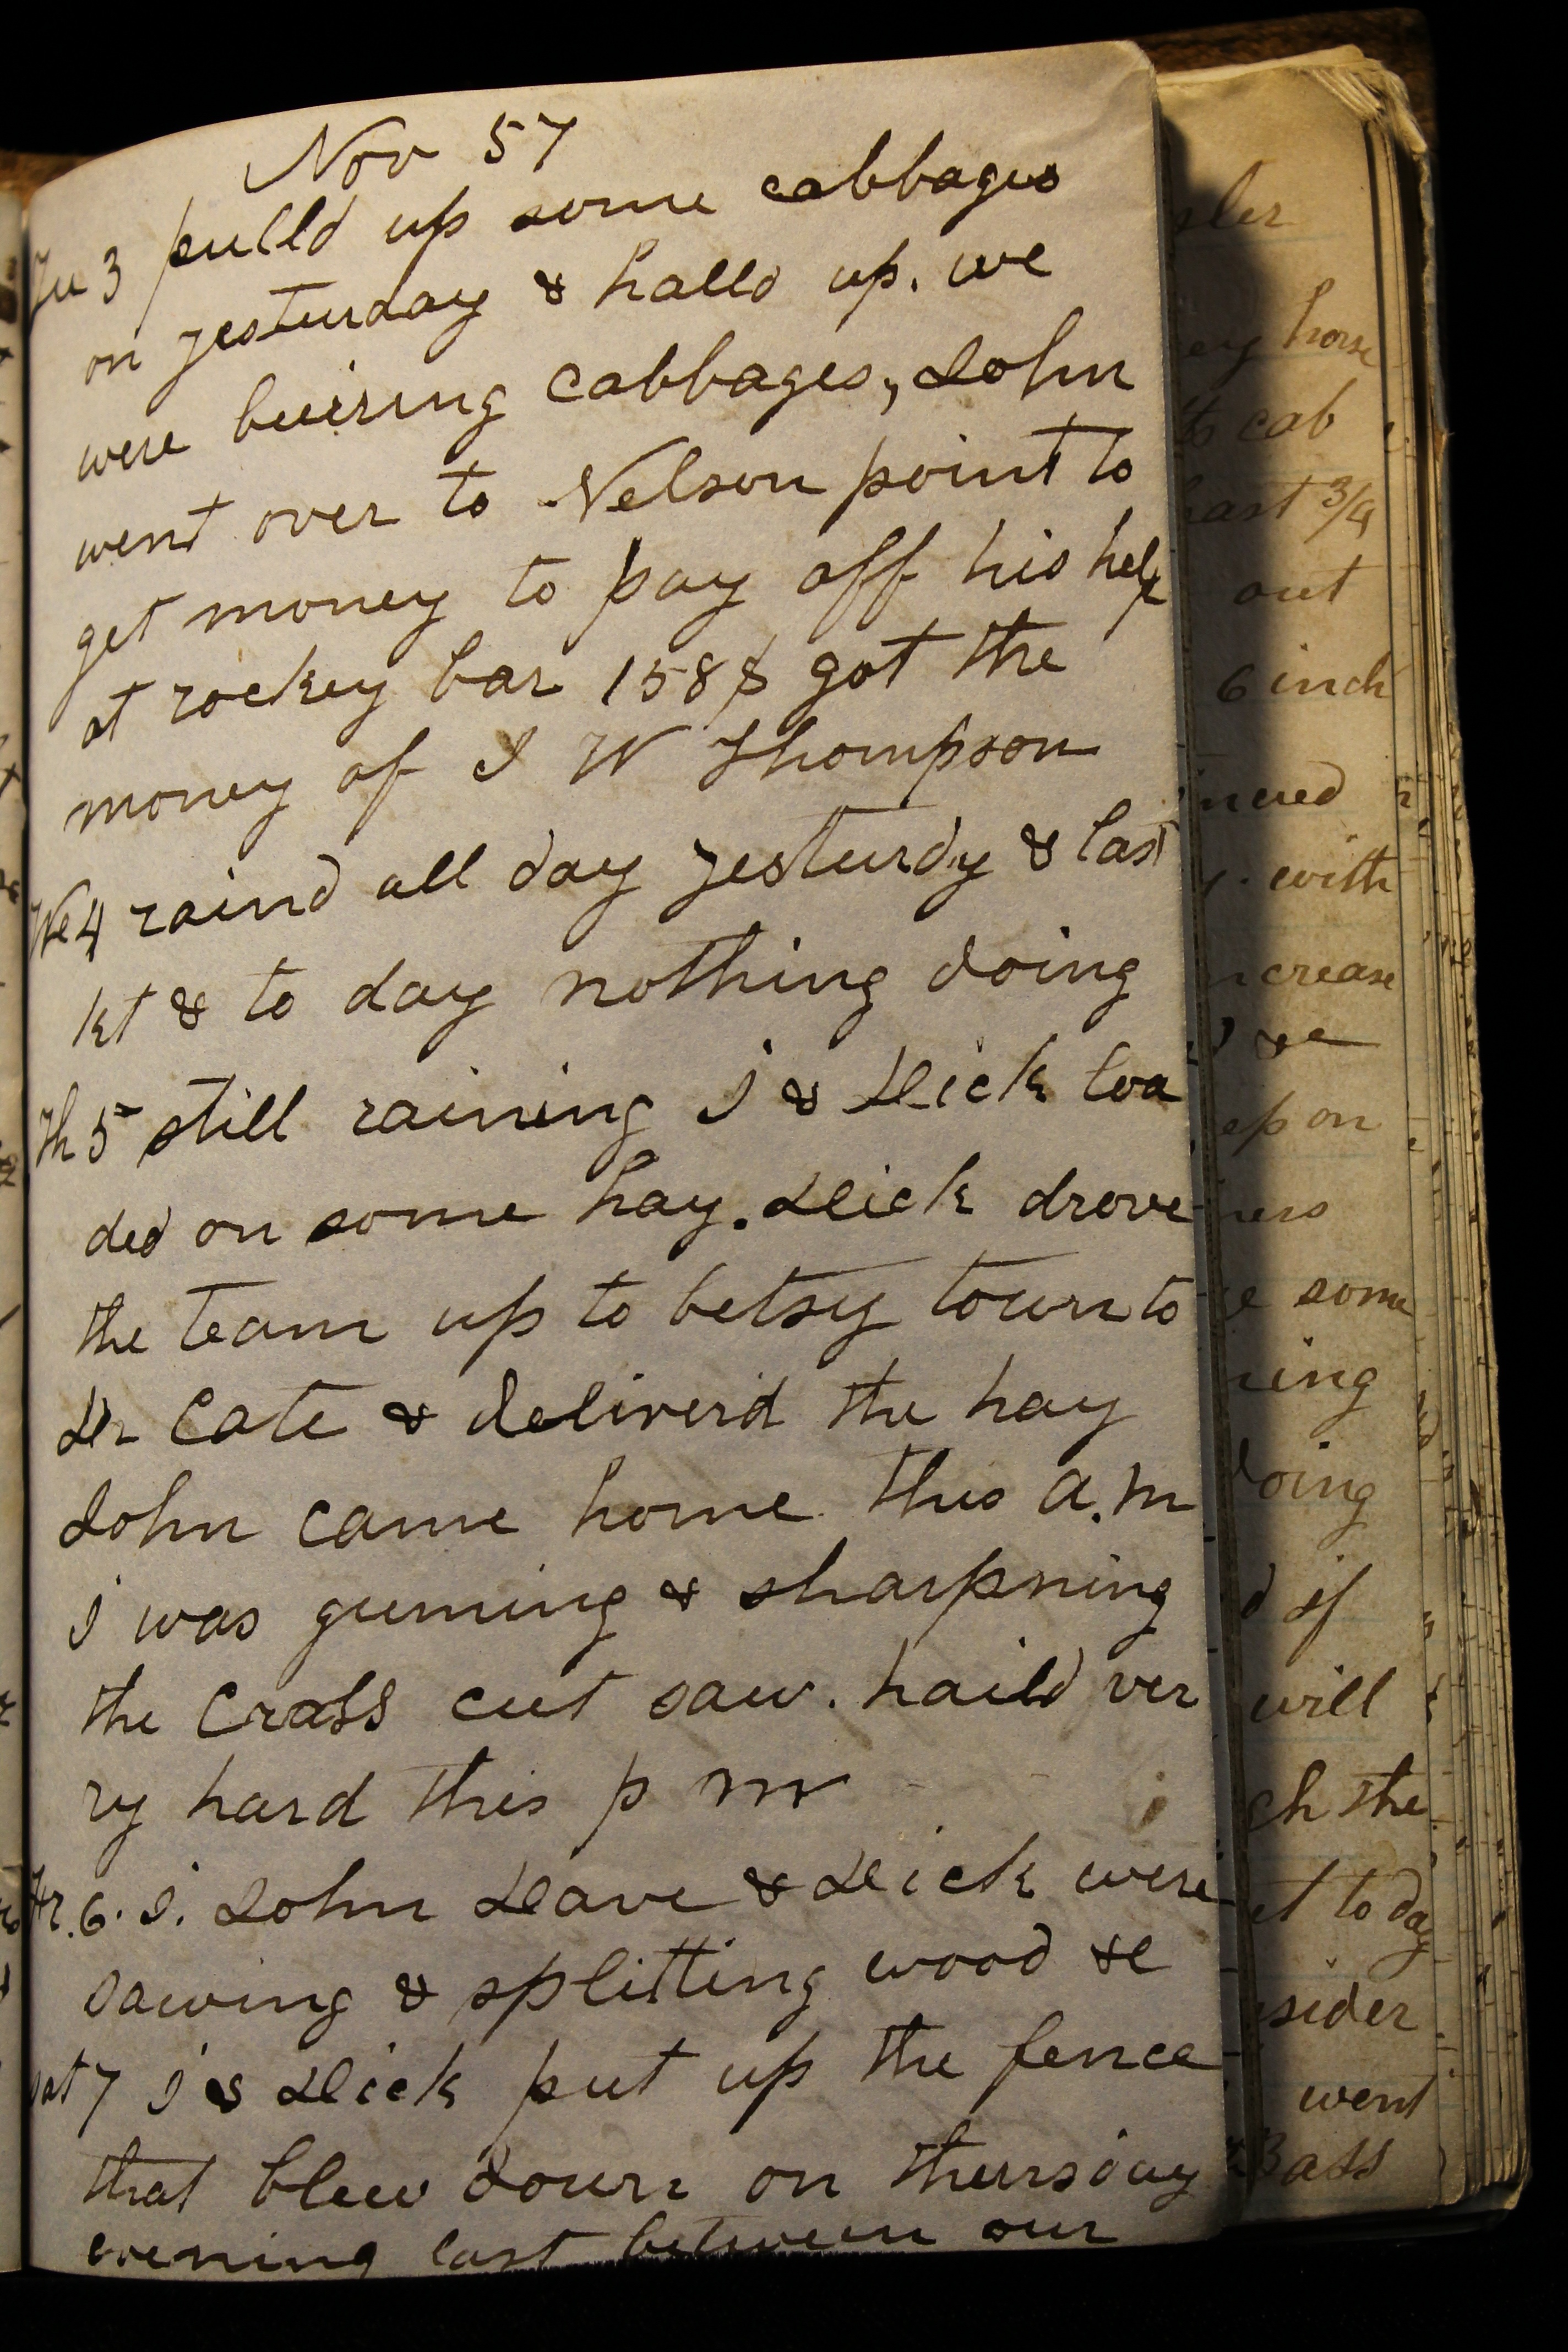 Nov 57
Tu 3 pulld up some cabbages
on yesturday & halld up. we
were buiring cabbages, John
went over to Nelson point to
get money to pay off his help
at rockey bar 158$ got the
money of J W Thompson
We 4 raind all day yesturdy & last
kt & to day nothing doing
Th 5 still raining I & Dick loa
ded on some hay. Dick drove
the team up to betsy town to
Dr Cate & deliverd the hay
John came home this a.m
I was guming & sharpning
the Cross cut saw. haild ver
ry hard this p m
Fr. 6. I. John Dave & Dick were
sawing & splitting wood &c
Sat 7 I & Dick put up the fence
that blew down on thursday
evening last between our
horse
cab
3/4
out
6 inch
with
crease
&c
on
some
oing
if
will
the
to day
sider
went
Bass